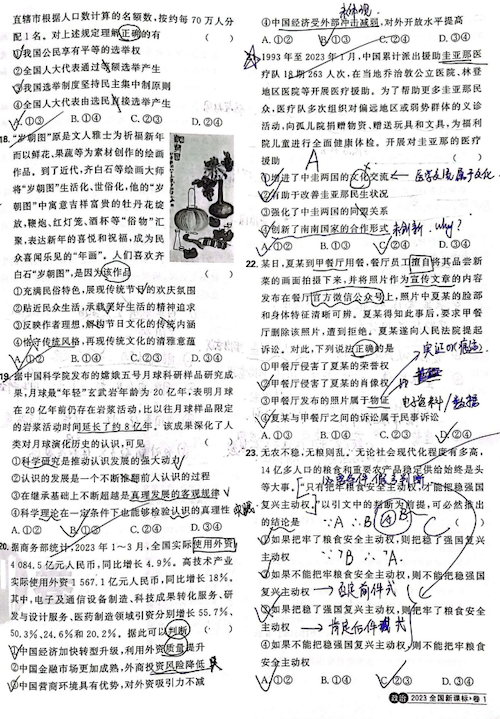 直辖市根据人口数计算的名额数，按约每 70 万人分
配 1 名。对上述规定理解正确的有
①我国公民享有平等的选举权
②全国人大代表通过等额选举产生
③我国选举制度坚持民主集中制原则
④全国人大代表由选民直接选举产生
A.①③ B.①④ C.②③ D.②④
18.“岁朝图”原是文人雅士为祈福新年
而以鲜花、果蔬等为素材创作的绘画
作品。到了近代，齐白石等绘画大师
将“岁朝图”生活化、世俗化，他的“岁
朝图”中寓意吉祥富贵的牡丹花绽
放，鞭炮、红灯笼、酒杯等“俗物”汇
聚，表达新年的喜悦和祝福，成为民
众喜闻乐见的“年画”。人们喜欢齐
白石“岁朝图”，是因为该作品 （ ）
①充满民俗特色，展现传统节日的欢庆氛围
②贴近民众生活，承载美好生活的精神追求
③反映作者理想，解构节日文化的传统内涵
④恪守传统风格，再现传统文化的清雅意蕴
A.①② B.①④ C.②③ D.③④
19.据中国科学院发布的嫦娥五号月球科研样品研究成
果，月球最“年轻”玄武岩年龄为 20 亿年，表明月球
在 20 亿年前仍存在岩浆活动，比以往月球样品限定
的岩浆活动时间延长了约 8 亿年。该成果深化了人
类对月球演化历史的认识，可见 （ ）
①科学研究是推动认识发展的强大动力
②认识的发展是一个不断推翻前人认识的过程
③在继承基础上不断超越是真理发展的客观规律
④科学理论在一定条件下也能够检验认识的真理性
A.①② B.①③ C.②④ D.③④
20.据商务部统计，2023 年 1～3 月，全国实际使用外资
4 084.5 亿元人民币，同比增长 4.9%。高技术产业
实际使用外资 1 567.1 亿元人民币，同比增长 18%。
其中，电子及通信设备制造、科技成果转化服务、研
发与设计服务、医药制造领域引资分别增长 55.7%、
50.3%、24.6%和 20.2%。据此可以判断 （ ）
①中国经济加快转型升级，利用外资质量提升
②中国金融市场更加成熟，外商投资风险降低
③中国营商环境具有优势，对外资吸引力不减
④中国经济受外部冲击减弱，对外开放水平提高
A.①② B.①③ C.②④ D.③④
21.1993 年至 2023 年 1 月，中国累计派出援助圭亚那医
疗队 18 期 263 人次，在当地乔治敦公立医院、林登
地区医院等开展医疗援助。为了帮助更多圭亚那民
众，医疗队多次组织对偏远地区或弱势群体的义诊
活动，向孤儿院捐赠物资、赠送玩具和文具，为福利
院儿童进行全面健康体检。开展对圭亚那的医疗
援助 A （ ）
①增进了中圭两国的文化交流
②有助于改善圭亚那民生状况
③强化了中圭两国的同盟关系
④创新了南南国家的合作形式 未创新 why?
A.①② B.①③ C.②④ D.③④
22.某日，夏某到甲餐厅用餐，餐厅员工擅自将其品尝新
菜的画面拍摄下来，并将照片作为宣传文章的内容
发布在餐厅官方微信公众号上，照片中夏某的脸部
和身体特征清晰可辨。夏某得知此事后，要求甲餐
厅删除该照片，遭到拒绝。夏某遂向人民法院提起
诉讼。对此，下列说法正确的是
①甲餐厅侵害了夏某的荣誉权
②甲餐厅侵害了夏某的肖像权
③甲餐厅发布的照片属于物证
④夏某与甲餐厅之间的诉讼属于民事诉讼
A.①③ B.①④ C.②③ D.②④
23.无农不稳，无粮则乱。无论社会现代化程度有多高，
14 亿多人口的粮食和重要农产品稳定供给始终是头
等大事。“只有把牢粮食安全主动权，才能把稳强国
复兴主动权。”以引文中的判断为前提，可必然推出
的结论是
①如果把牢了粮食安全主动权，则把稳了强国复兴
主动权
②如果不能把牢粮食安全主动权，则不能把稳强国
复兴主动权 → 否定前件式
③如果把稳了强国复兴主动权，则把牢了粮食安全
主动权 → 肯定后件式
④如果不能把稳强国复兴主动权，则不能把牢粮食
安全主动权
A.①② B.①④ C.②③ D.③④
政治 2023 全国新课标·卷 1